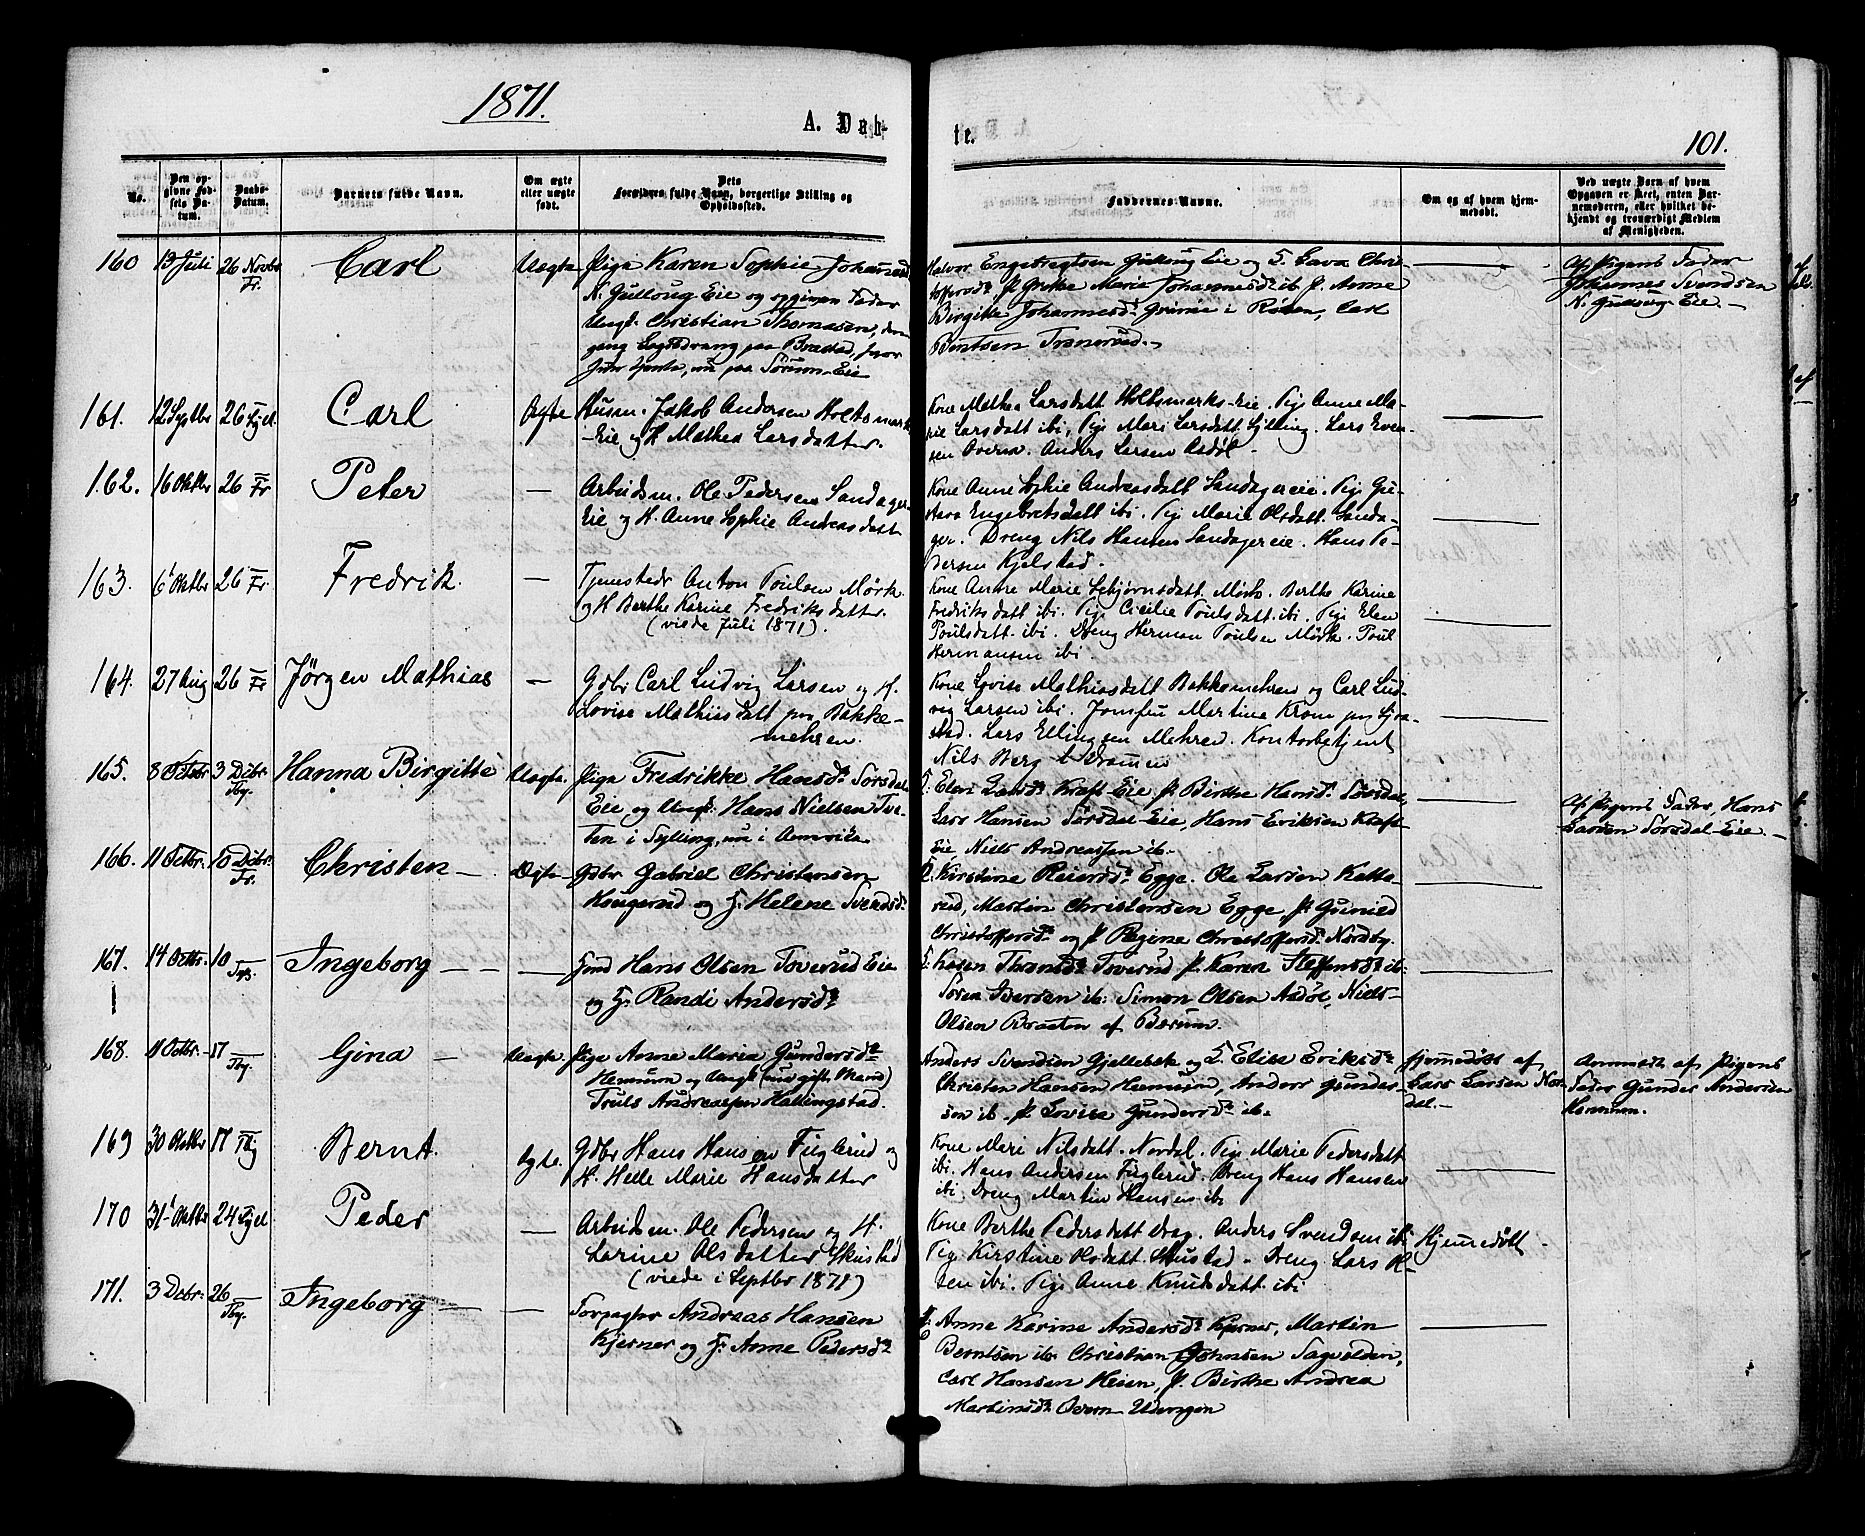 1871.
A. Døb-
te.
101.
No.
Den op-
givne Fød-
sels Da-
tum.
Daabs-
Datum.
Barnets fulde Navn.
Om ægte
eller uægte
født.
Dets
Forældres fulde Navn, borgerlige Stilling og
Opholdssted.
Faddernes Navne.
Om og af hvem hjem-
medøbt.
Ved uægte Børn af hvem
Opgaven er skeet, enten Bar-
nemoderen, eller hvilket be-
kjendt og troværdigt Medlem
af Menigheden.
160 13 Juli 26 Novbr Fr. Carl Uægte
Pige Karen Sophie Johannesd
N. Gulloug Eie og opgiven Fader
Ungk. Christian Thomasen, den
gang paa Brastad,
nu paa Sørum-Eie
Halvor Engebregtsen Gulloug Eie og
P. Grethe Marie Johannesdr ib. P. Anne
Birgitte Johannesdr Grimie i Røken, Carl
Berntsen Tranerud.
Af Pigens Fader
Johannes Svendsen
N. Gulloug Eie.
161. 12 Septbr 26 Tjel. Carl Ægte
Husm. Jakob Andersen Holtsmark
Eie og H. Mathea Larsdatter.
Kone Mathea Larsdatt Holtsmarks-Eie. Pige Anne Ma-
rie Larsdatt ibi, Pige Mari Larsdatt Sylling. Lars Even-
sen Overn. Anders Larsen Asdøl
162. 16 Oktbr 26 Fr Peter —
Arbeidsm. Ole Pedersen Sandager-
Eie og H. Anne Sophie Andreasdatt
Kone Anne Sophie Andreasdatt Sandagereie. Pige Gu-
stava Engebretsdatt ibi. Pige Marie Olsdatt. Sanda-
ger. Dreng Nils Hansen Sandagereie. Hans Pe-
dersen Kjelstad.
163. 6 Oktbr 26 Fr Fredrik —
Tjenestedr Anton Poulsen Mørk
og H Berthe Karine Fredriksdatter.
(viede Juli 1871).
Kone Anne Marie Esbjørnsdatt Mørk. Berthe Karine
Fredriksdatt ibi. Pige Cicilie Poulsdatt ibi. Pige Elen
Poulsdatt ibi. Dreng Herman Poulsen Mørk. Poul
Hermansen ibi.
164. 27 Aug 26 Fr Jörgen Mathias —
Gdbr Carl Ludvig Larsen og H.
Lovise Mathiasdatt paa Bakke-
mehren.
Kone Lovise Mathiasdatt Bakkemehren og Carl Lud-
vig Larsen ibi. Jomfru Martine Krom paa
Lars Ellingsen Mehren. Kontorbetjent
Nils Berg Dramen
165. 8 Octobr 3 Dcbr. Tby. Hanna Birgitte Uægte
Pige Fredrikke Hansdr Sørsdal
Eie og Ungk. Hans Nielsen Tve-
ten i Sylling, nu i Amerika.
Eleri Larsdr Kraft-Eie, P. Birthe Hansdr Sørsdal,
Lars Hansen Sørsdal-Eie, Hans Eriksen Kraft-
Eie Niels Andreassen ib.
Af Pigens Fader, Hans
Larsen Sørsdal-Eie.
166. 11 Octbr. 10 Dcbr. Fr. Christen — Ægte
Gdbr Gabriel Christensen
Haugerud og H. Helene Svendsdr
Kirstine Reiersdr Egge. Ole Larsen Katte-
rud, Martin Christensen Egge, P. Gunild
Christoffersdr og P. Regine Christoffersdr Nordby.
167. 14 Octbr. 10 Ingeborg — — —
Hans Olsen Toverud Eie
og H. Randi Andersdr
Karen Thronsdr Toverud P. Karen Steffensdr ib:
Søren Iversen ib: Simon Olsen Asdøl, Niels
Olsen Braaten af Bærum.
168. 11 Octbr. 17 Tby. Gina — Uægte.
Pige Anne Maria Gundersdr
Hennum og Ungk (nu gift Mand)
Truls Andreassen Hallingstad.
Anders Svendsen Gjellebek og H. Elise Eriksdr
Christen Hansen Hennum, Anders Gunder-
sen ib. P. Lovise Gundersdr ib.
Hjemmedøbt af
Lars Larsen Nor-
dal.
Anmeldt af Pigens
Fader Gunder Andersen
Hennum.
169 30 Oktbr 17 Tby Bernt. Ægte.
Gdbr Hans Hansen Fuglerud og
H. Helle Marie Hansdatter
Kone Mari Nilsdatt. Nordal. Pige Marie Pedersdatt
ibi. Hans Andersen Fuglerud. Dreng Hans Hansen
ibi, Dreng Martin Hansen ib
170 31 Oktbr 24 Tjel Peder —
Arbeidsm. Ole Pedersen og H.
Larine Olsdatter Skustad
(viede i Septbr 1871)
Kone Berthe Pedersdatt Drag. Anders Svendsen ib.
Pige Kirstine Olsdatt. Skustad. Dreng Lars Ol-
sen ibi. Pige Anne Knudsdatt ibi
Hjemmedøbt.
171. 3 Dcbr: 26 Tby. Ingeborg — —
Forpagter Andreas Hansen
Kjerner og H. Anne Pedersdr
Anne Karine Andersdr Kjerner, Martin
Berntsen ib. Christian Johnsen Sagvolden,
Carl Hansen Heien, P. Birthe Andrea
Martinsdr Overn Udengen